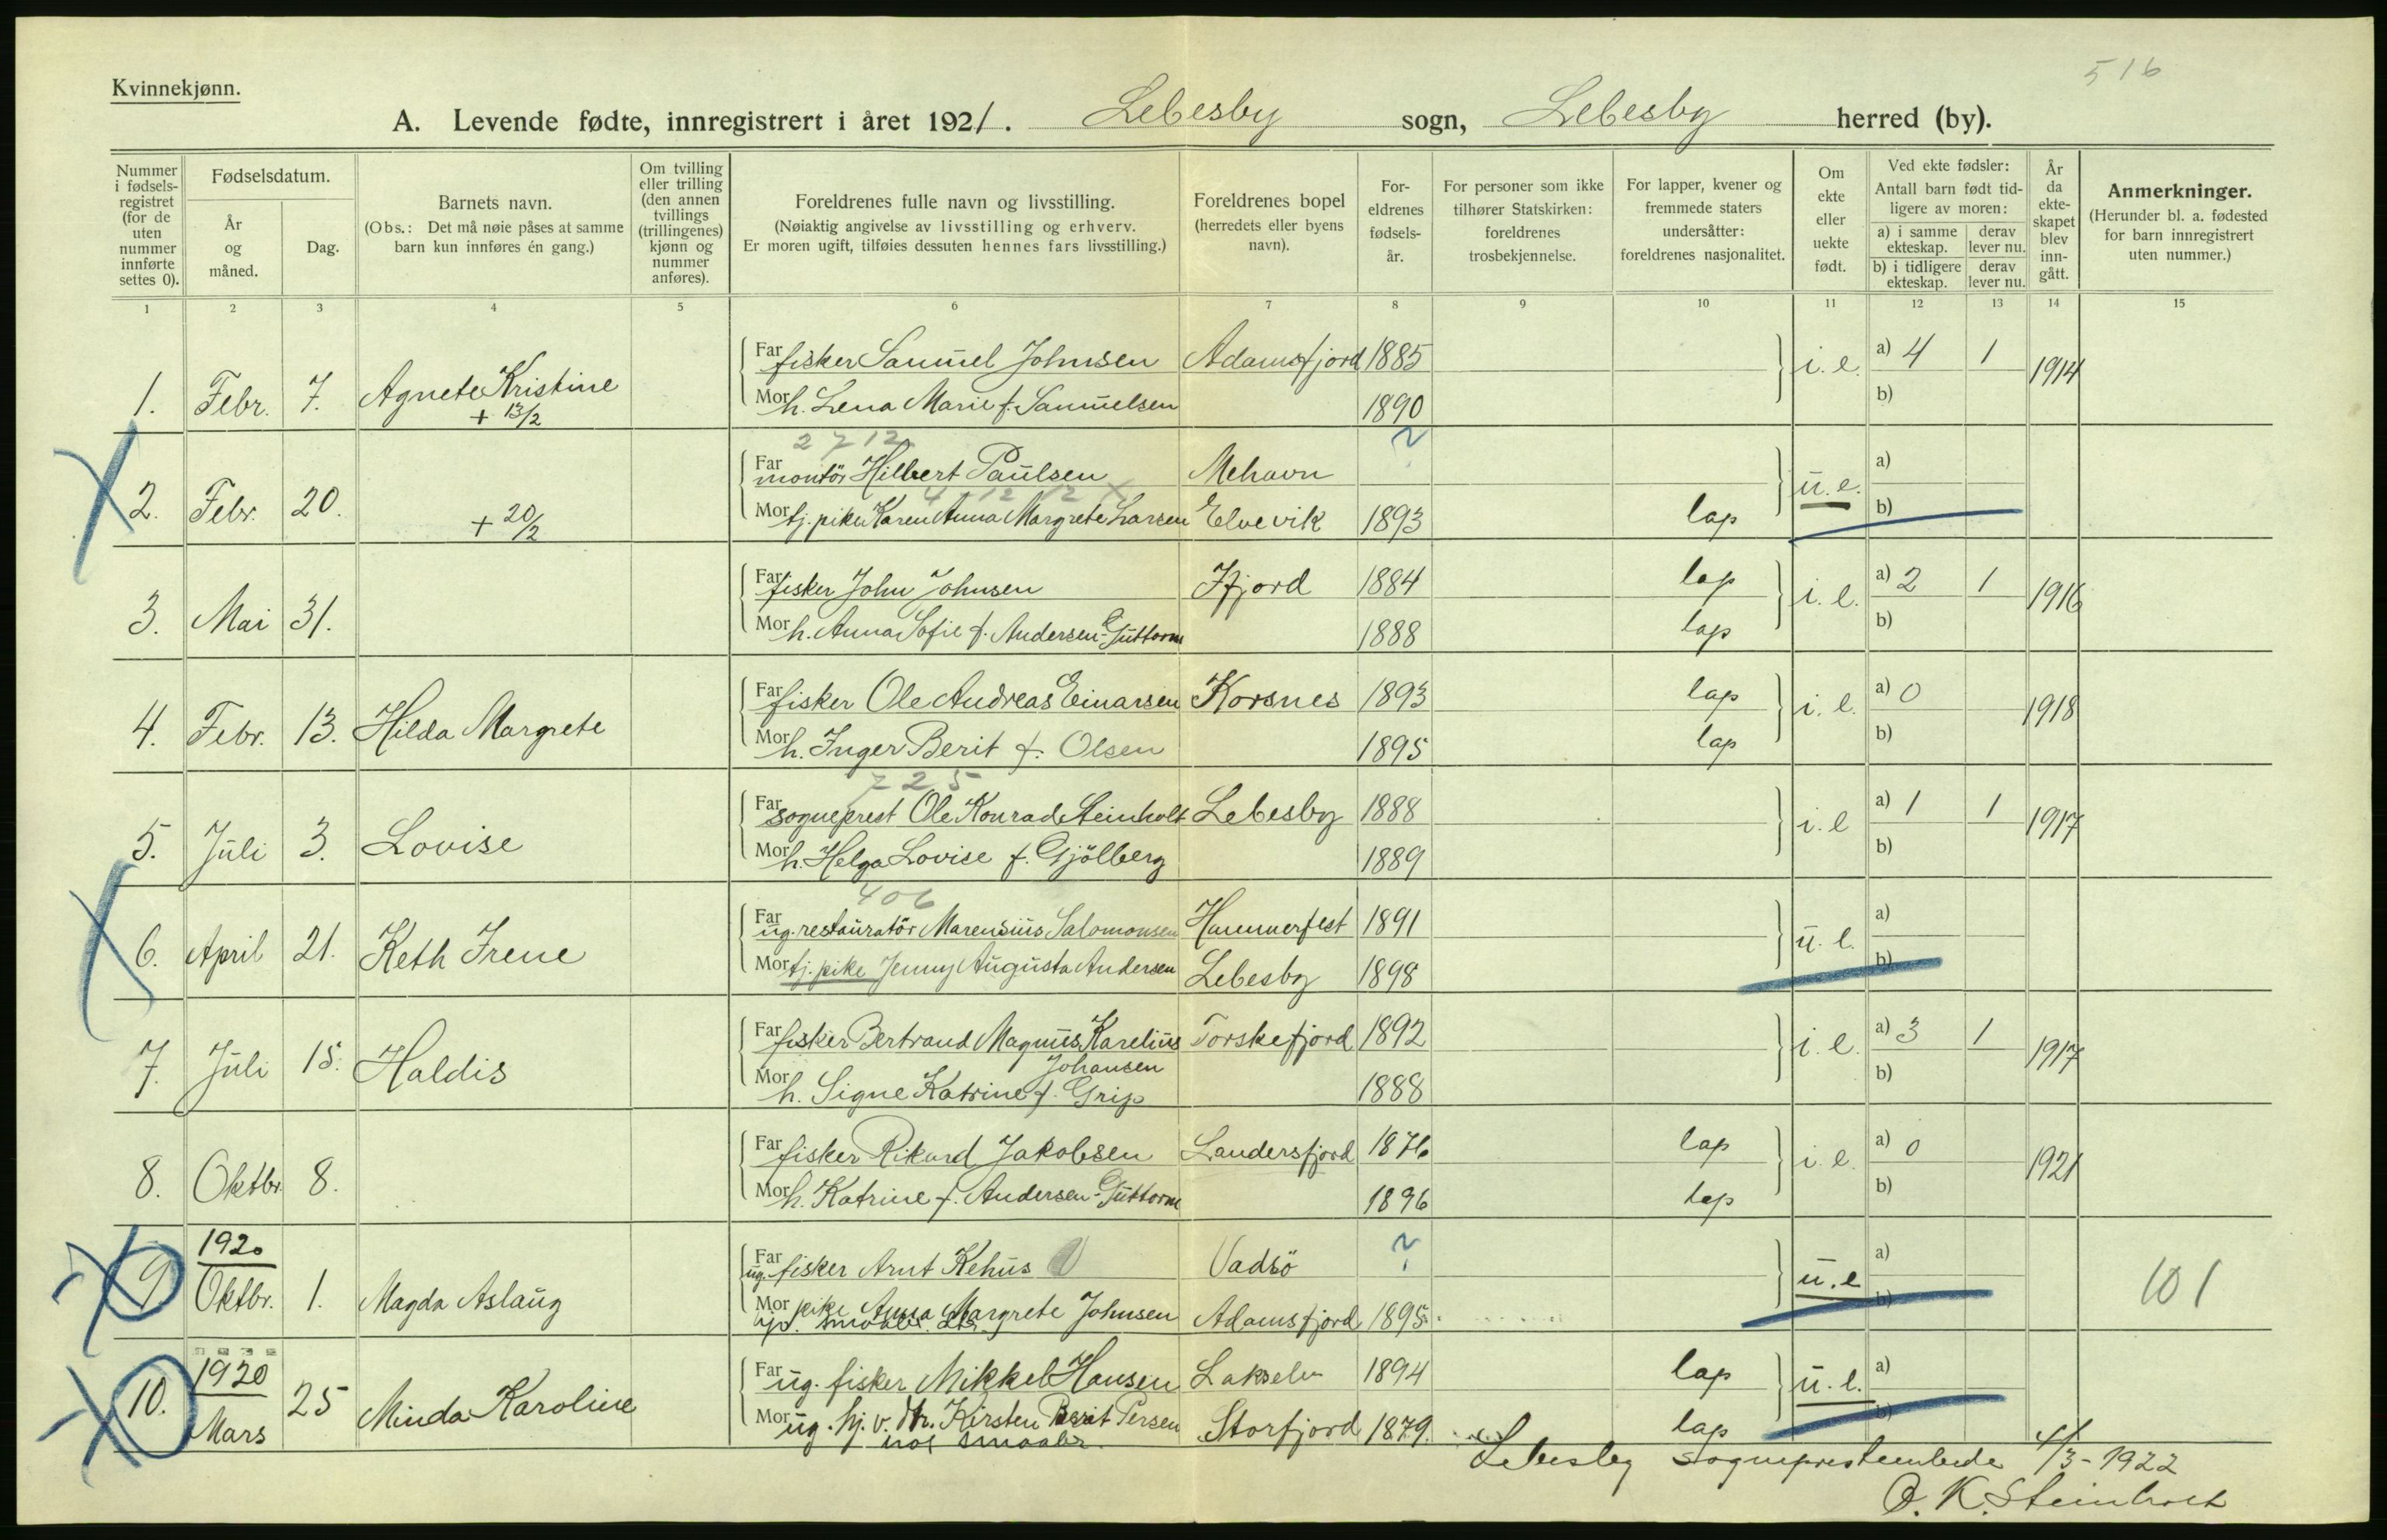 516
Kvinnekjønn.
A. Levende fødte, innregistrert i året 1921. Lebesby sogn, Lebesby herred (by).
Nummer i fødsels-registret (for de uten nummer innførte settes 0).
Fødselsdatum.
År og måned.
Dag.
Barnets navn.
(Obs.: Det må nøie påses at samme barn kun innføres én gang.)
Om tvilling eller trilling (den annen tvillings (trillingenes) kjønn og nummer anføres).
Foreldrenes fulle navn og livsstilling.
(Nøiaktig angivelse av livsstilling og erhverv.
Er moren ugift, tilføies dessuten hennes fars livsstilling.)
Foreldrenes bopel (herredets eller byens navn).
For-eldrenes fødsels-år.
For personer som ikke tilhører Statskirken: foreldrenes trosbekjennelse.
For lapper, kvener og fremmede staters undersåtter: foreldrenes nasjonalitet.
Om ekte eller uekte født.
Ved ekte fødsler:
Antall barn født tid-ligere av moren:
a) i samme ekteskap. derav lever nu.
b) i tidligere ekteskap. derav lever nu.
År da ekte-skapet blev inn-gått.
Anmerkninger.
(Herunder bl. a. fødested for barn innregistrert uten nummer.)
1 2 3 4 5 6 7 8 9 10 11 12 13 14 15
Far fisker Samuel Johnsen Adamsfjord 1885 i. e. a) 4 1 1914
1. Febr. 7. Agnete Kristine
+ 13/2
Mor h. Lena Marie f. Samuelsen 1890 b)
2 7 12
Far montör Hilbert Paulsen Mehavn ? u. e. a)
2. Febr. 20. + 20/2
Mor tj. pike Karen Anna Margrete Larsen Elvevik 1893 lap b)
Far fisker John Johnsen Ifjord 1884 lap i. e. a) 2 1 1916
3. Mai 31.
Mor h. Anna Sofie f. Andersen-Guttorm 1888 lap b)
Far fisker Ole Andreas Einarsen Korsnes 1893 lap i. e. a) 0 1918
4. Febr. 13. Hilda Margrete
Mor h. Inger Berit f. Olsen 1895 lap b)
7 2 5
Far sogneprest Ole Konrad Steinholt Lebesby 1888 i. e a) 1 1 1917
5. Juli 3. Lovise
Mor h. Helga Lovise f. Gjölberg 1889 b)
406
Far ug. restauratör Marensius Salomonsen Hammerfest 1891 u. e. a)
6. April 21. Keth Irene
Mor tj. pike Jenny Augusta Andersen Lebesby 1898 b)
Far fisker Bertrand Magnus Karelius Johansen Torskefjord 1892 i. e. a) 3 1 1917
7. Juli 15. Haldis
Mor h. Signe Katrine f. Grip 1888 b)
Far fisker Rikard Jakobsen Landersfjord 1876 lap i. e. a) 0 1921
8. Oktbr. 8.
Mor h. Katrine f. Andersen-Guttorm 1896 lap b)
1920
Far ug. fisker Arnt Kehus Vadsö ? u. e a)
9. Oktbr. 1. Magda Aslaug 101
Mor pike Anna Margrete Johnsen Adamsfjord 1895 b)
1920
Far ug. fisker Mikkel Hansen Lakselv 1894 lap u. e. a)
10. Mars 25 Minda Karoline
Mor ug. hj. v. Kirsten Berit Persen Storfjord 1879. lap b)
hos smaabr.
Lebesby sogneprestembede 4/3-1922
O. K. Steinholt